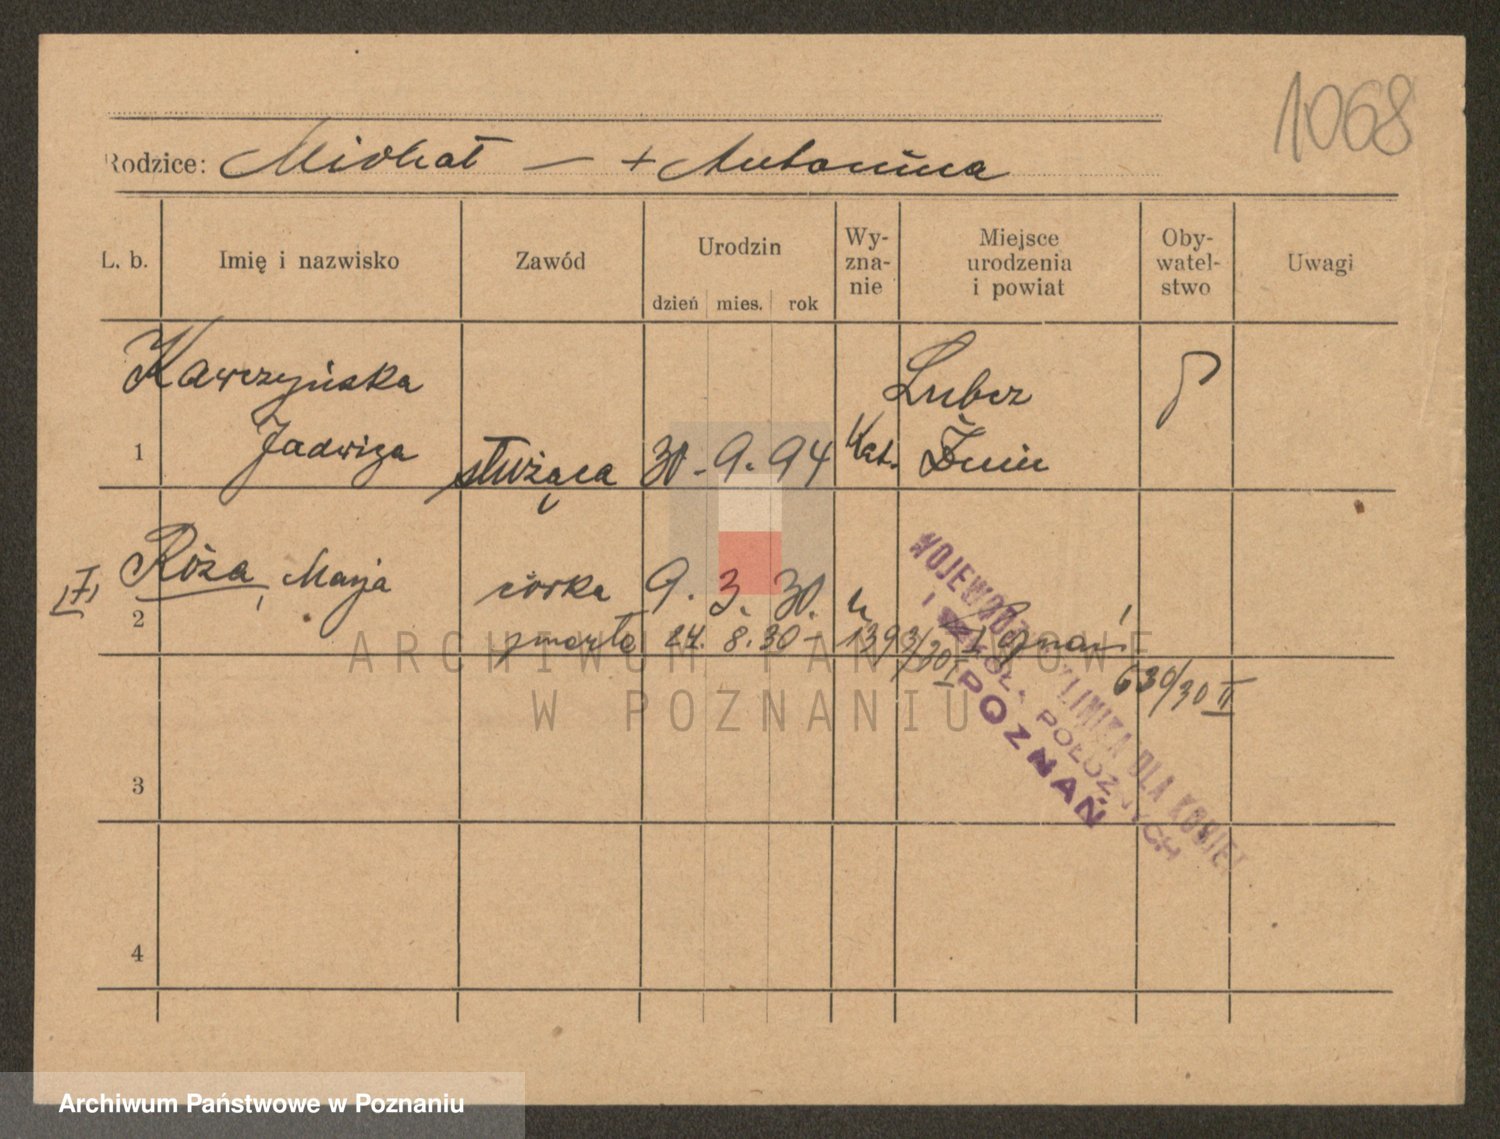 1068
Rodzice: Michał — + Antonina
L. b. Imię i nazwisko Zawód Urodzin dzień mies. rok Wy-zna-nie Miejsce urodzenia i powiat Oby-watel-stwo Uwagi
Kawczyńska Lubcz P
1 Jadwiga służąca 30. 9. 94 Kat. Żnin
[I] Róża, Marja córka 9. 3. 30. "
2 zmarła 24. 8. 30 – 1393/30 I Poznań 630/30 II
WOJEWÓDZKA KLINIKA DLA KOBIET
I SZKOŁ. POŁOŻNYCH
POZNAŃ
3
4
ARCHIWUM PAŃSTWOWE
W POZNANIU
Archiwum Państwowe w Poznaniu